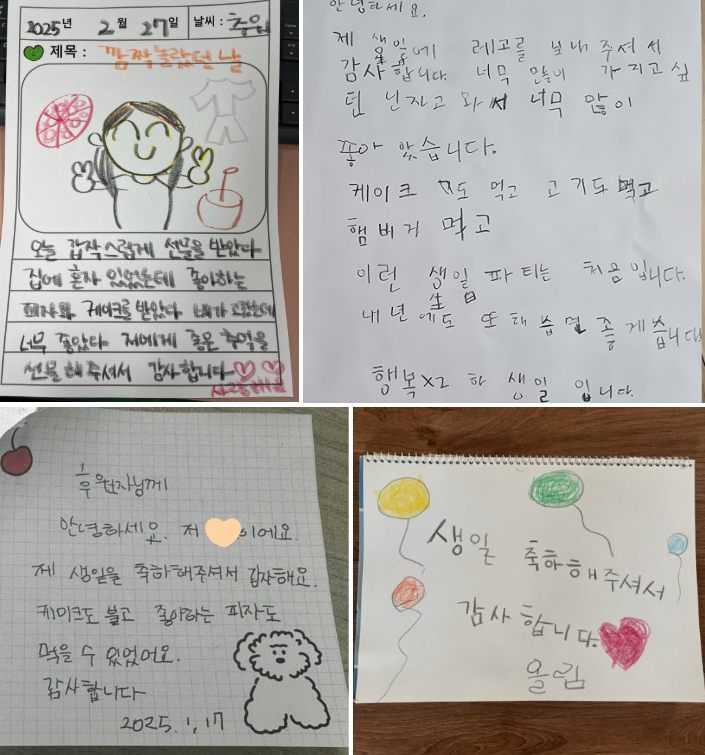 2025년 2월 27일 날씨: 추움
제목: 깜짝놀랐던 날
오늘 갑작스럽게 선물을 받았다
집에 혼자 있었는데 좋아하는
피자와 케이크를 받았다 내가 고랐는데
너무 좋았다 저에게 좋은 추억을
선물 해 주셔서 감사합니다
안녕하세요.
제 생일에 레고를 보내 주셔서
生日
감사합니다. 너무 만들이 가지고 싶
던 닌자고 와서 너무 많이
좋아 았습니다.
케이크 도 먹고 고기도 먹고
햄버거 먹고
이런 생일 파티는 처음입니다.
生日
내년에도 또 해 습면 좋게습니다
행복x2 한 생일 입니다.
후원자님께
안녕하세요. 저 이에요.
제 생일을 축하해주셔서 감사해요.
케이크도 불고 좋아하는 피자도
먹을 수 있었어요.
감사합니다
2025.1.17
생일 축하해주셔서
감사합니다.
올림